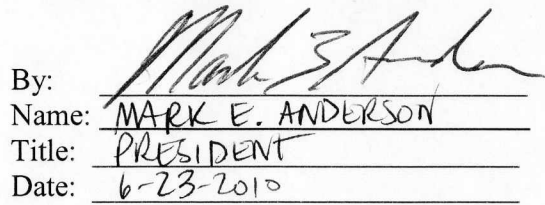 By: Mark E Anderson
Name: MARK E. ANDERSON
Title: PRESIDENT
Date: 6-23-2010